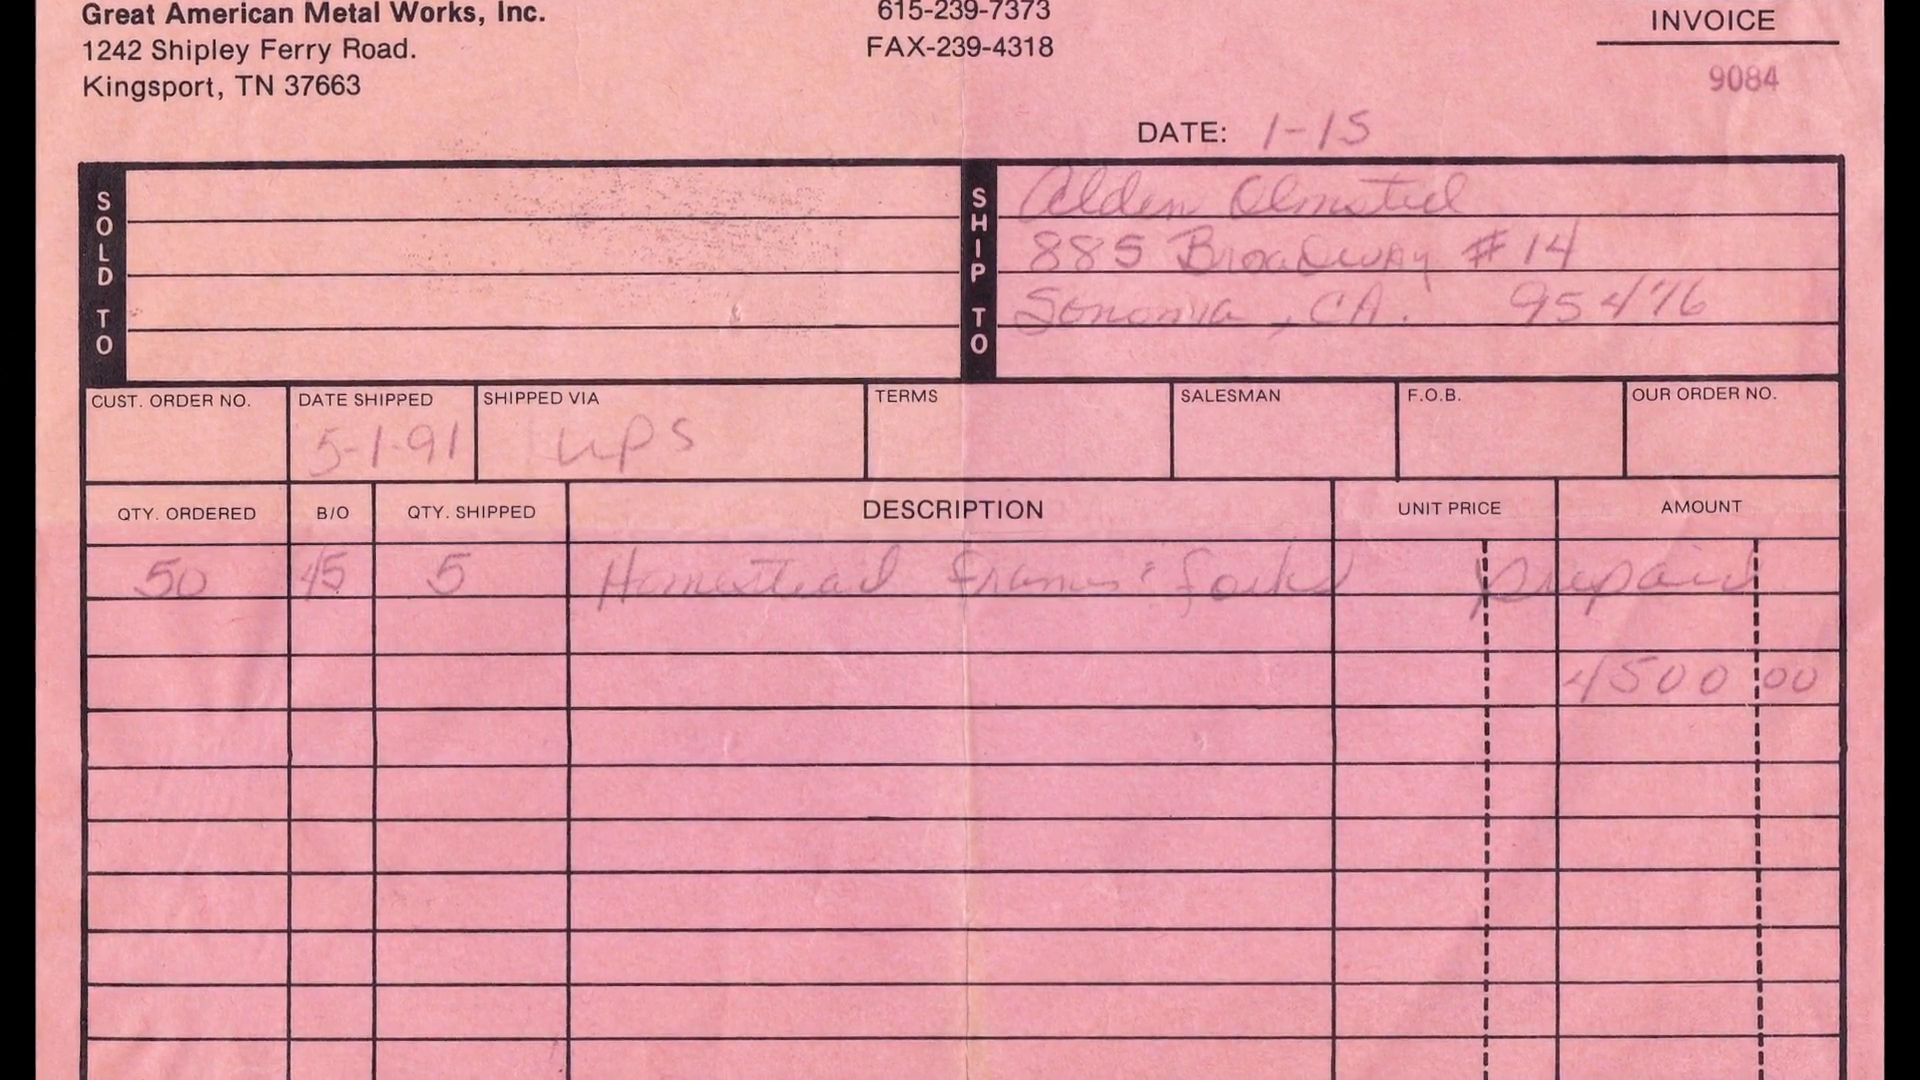 Great American Metal Works, Inc.
1242 Shipley Ferry Road.
Kingsport, TN 37663
615-239-7373
FAX-239-4318
INVOICE
9084
DATE: 1-15
SOLD TO
SHIP TO
Alden Olmsted
885 Broadway #14
Sonoma, CA. 95476
CUST. ORDER NO. DATE SHIPPED SHIPPED VIA TERMS SALESMAN F.O.B. OUR ORDER NO.
5-1-91 UPS
QTY. ORDERED B/O QTY. SHIPPED DESCRIPTION UNIT PRICE AMOUNT
50 45 5 Homestead frames & forks prepaid
4500 00